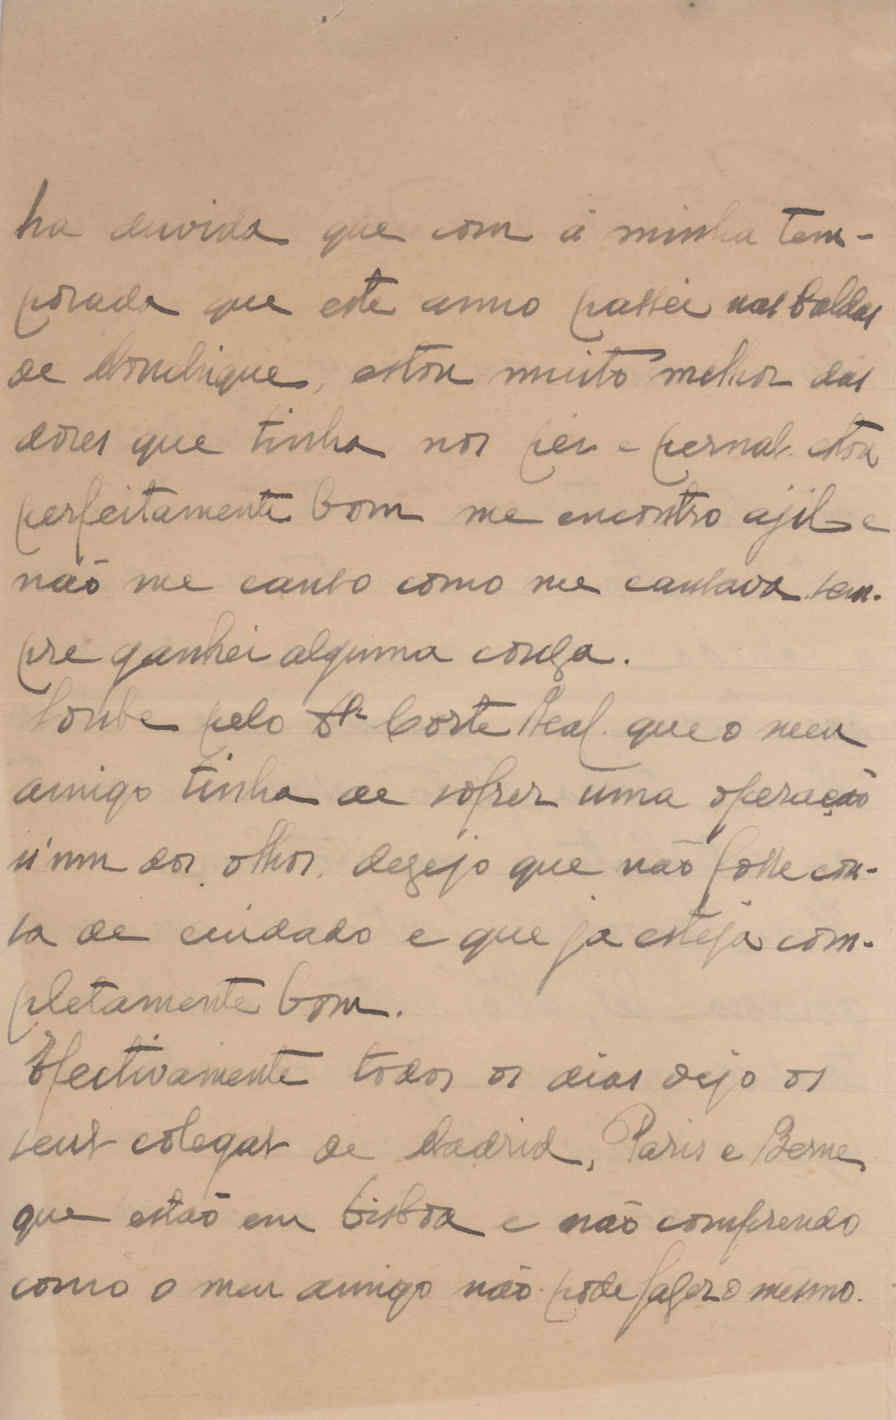 ha duvida que com a minha tem-
porada que este anno passei nas Caldas
de Monchique, estou muito melhor das
dôres que tinha nos pés e pernas estou
perfeitamente bom me encontro ajil e
não me canso como me cansava sem-
pre ganhei alguma couza.
Soube pelo Sr. Corte Real que o meu
amigo tinha de sofrer uma operação
n'um dos olhos. dezejo que não fosse cou-
sa de cuidado e que ja esteja com-
pletamente bom.
Efectivamente todos os dias vejo os
seus colegas de Madrid, Paris e Berne
que estão em Lisboa e não comprendo
como o meu amigo não pode fazer o mesmo.